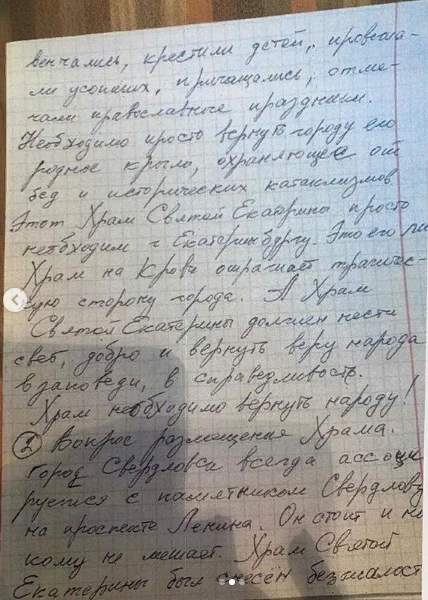 венчались, крестили детей, провожа-
ли усопших, причащались, отме-
чали православные праздники.
Необходимо просто вернуть городу его
родное крыло, охраняющее от
бед и исторических катаклизмов
Этот Храм Святой Екатерины просто
необходим г Екатеринбургу. Это его
Храм на Крови отражает трагичес-
кую сторону города. А Храм
Святой Екатерины должен нести
свет, добро и вернуть веру народа
в заповеди, в справедливость.
Храм необходимо вернуть народу!
2 Вопрос размещения Храма.
Город Свердловск всегда ассоци
руется с памятником Свердлову
на проспекте Ленина. Он стоит и ни
кому не мешает. Храм Святой
Екатерины был снесён безжалост